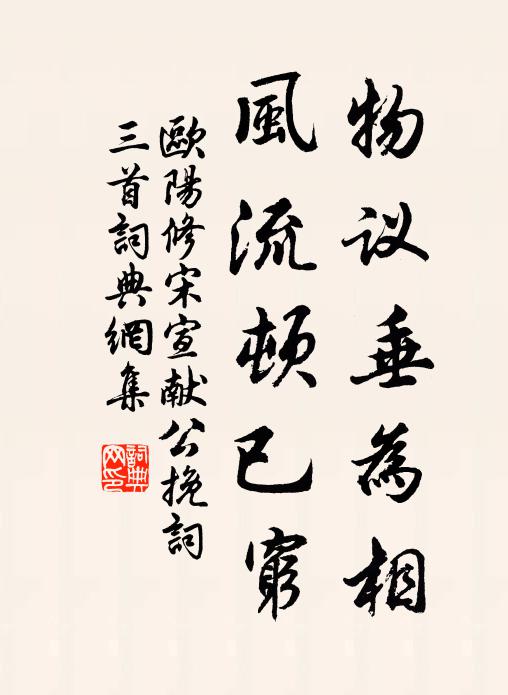 物议垂為相
風流頓已窮
歐陽修宋宣献公挽詞
三首詞典網集
詞典网印